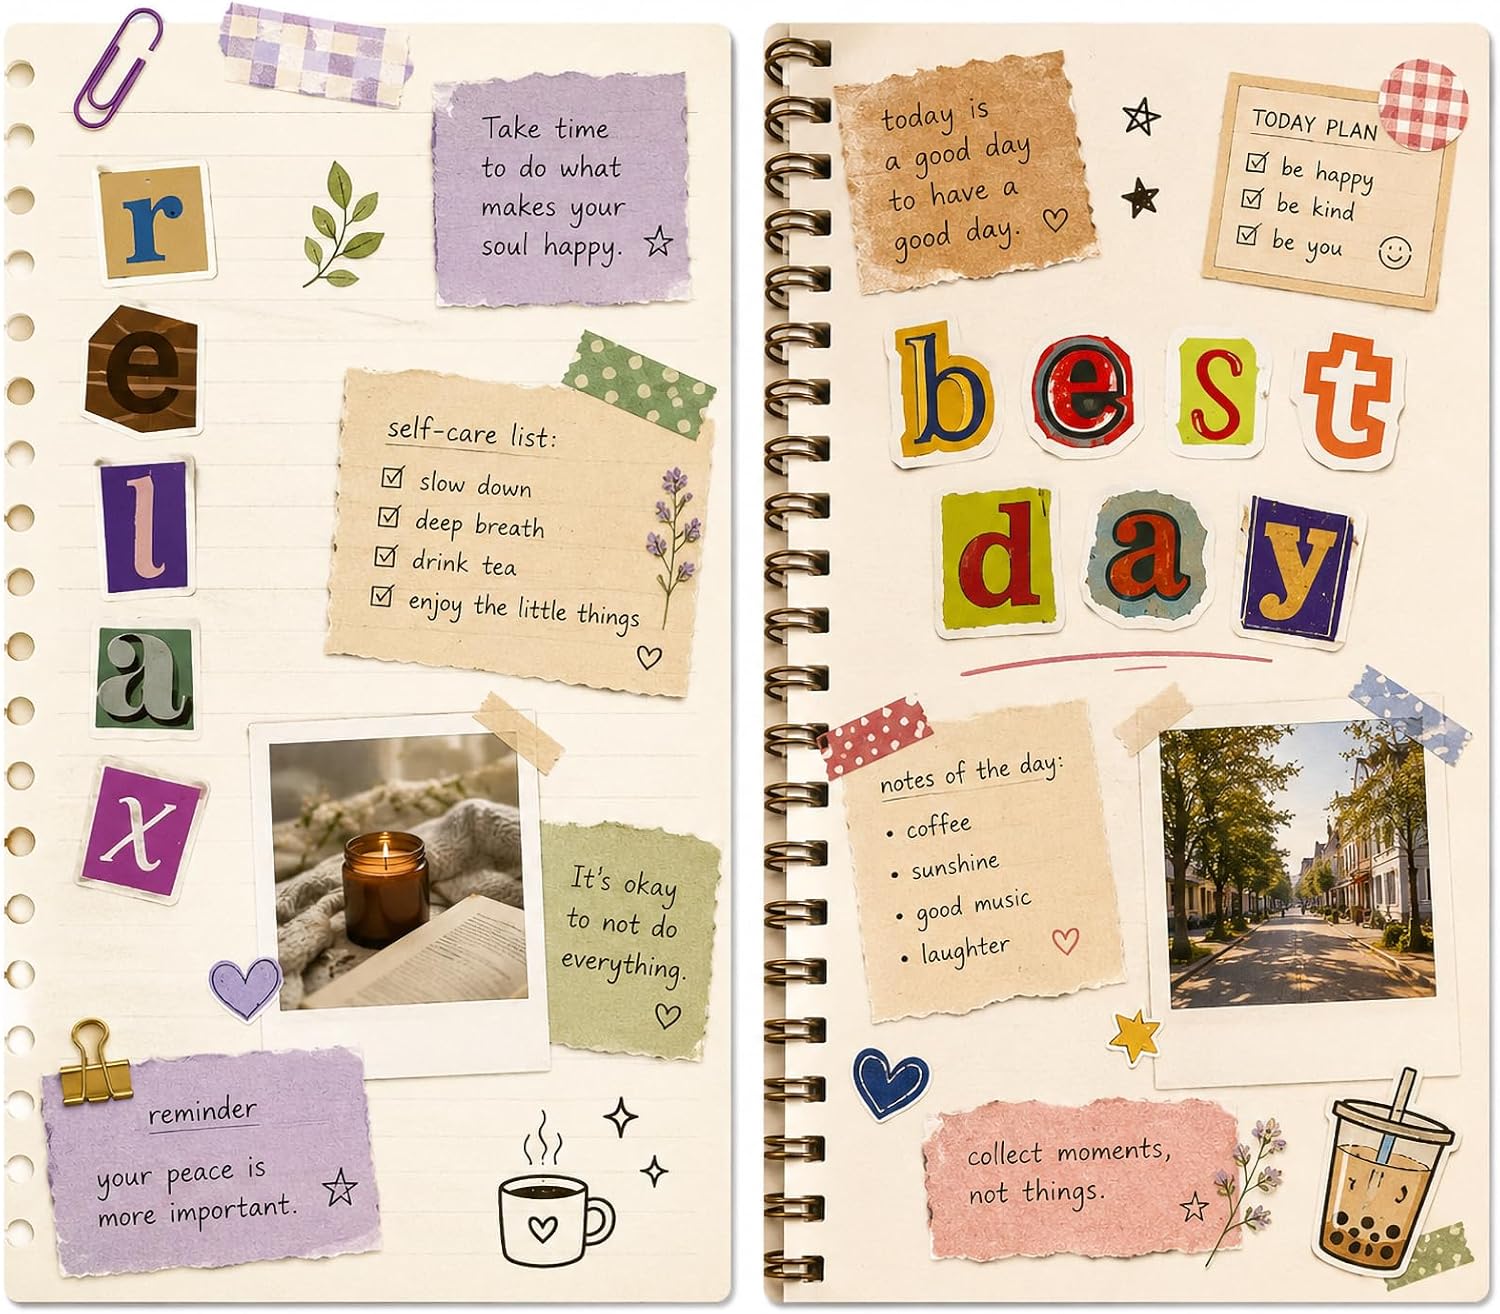 r
e
l
a
x
Take time
to do what
makes your
soul happy.
self-care list:
slow down
deep breath
drink tea
enjoy the little things
It's okay
to not do
everything.
reminder
your peace is
more important.
today is
a good day
to have a
good day.
TODAY PLAN
be happy
be kind
be you
best
day
notes of the day:
• coffee
• sunshine
• good music
• laughter
collect moments,
not things.